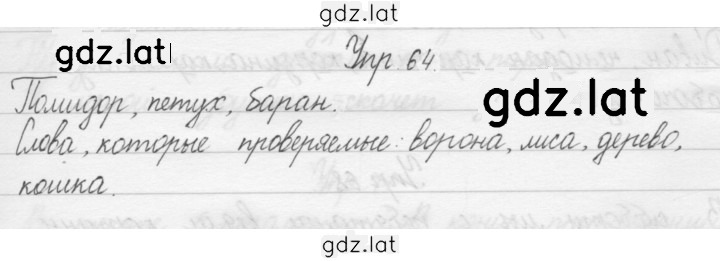 gdz.lat
gdz.lat
Упр. 64.
Помидор, петух, баран.
gdz.lat
Слова, которые проверяемые: ворона, лиса, дерево,
кошка.
gdz.lat